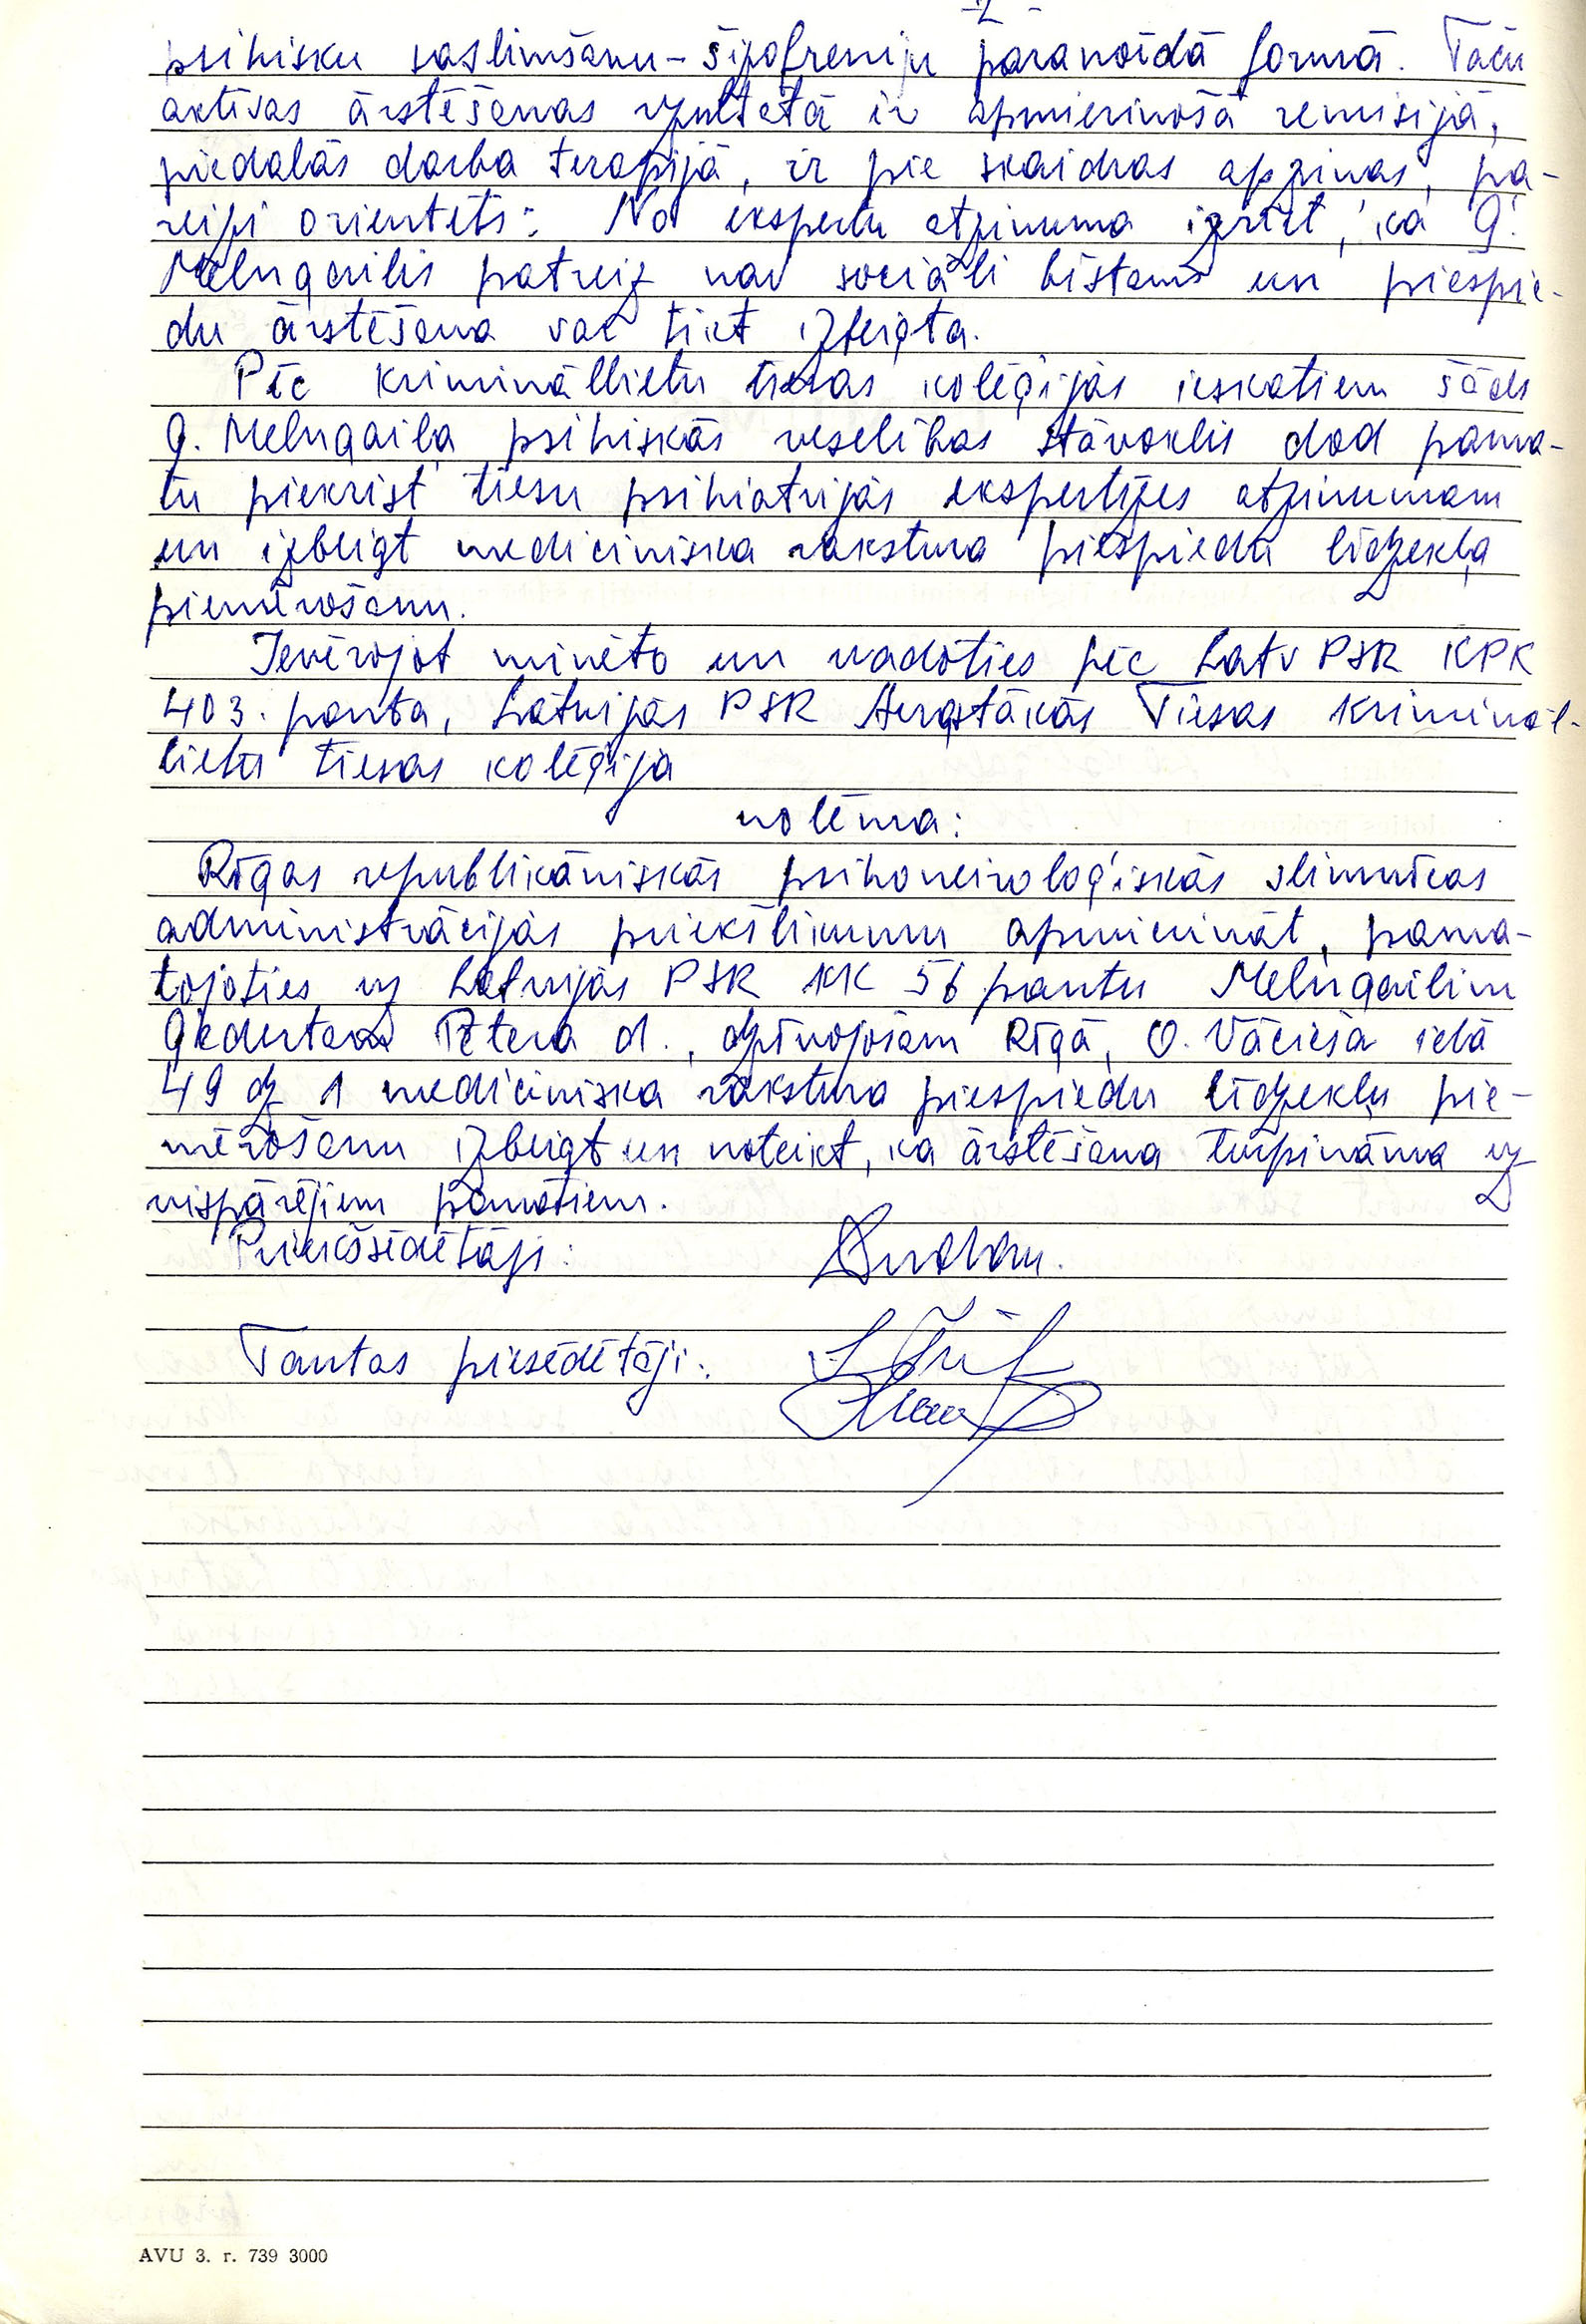 -2-
psihisku saslimšanu - šizofreniju paranoidā formā. Taču
aktīvas ārstēšanas rezultātā ir apmierinošā remisijā,
piedalās darba terapijā, ir pie skaidras apziņas, pa-
reizi orientēts. No ekspertu atzinuma izriet, ka G.
Melngailis patreiz nav sociāli bīstams un piespie-
du ārstēšana var tikt izbeigta.
Pēc krimināllietu tiesas kolēģijas ieskatiem šāds
G. Melngaiļa psihiskās veselības stāvoklis dod pama-
tu piekrist tiesu psihiatrijas ekspertīzes atzinumam
un izbeigt medicīniska rakstura piespiedu līdzekļa
piemērošanu.
Ievērojot minēto un vadoties pēc Latv PSR KPK
403. panta, Latvijas PSR Augstākās Tiesas Kriminăl-
lietu tiesas kolēģija
nolēma:
Rīgas republikāniskās psihoneiroloģiskās slimnīcas
administrācijas priekšlikumu apmierināt, pama-
tojoties uz Latvijas PSR KK 56 pantu Melngailim
Gedertam Pētera d., dzīvojošam Rīgā, O. Vācieša ielā
49 dz 1 medicīniska rakstura piespiedu līdzekļu pie-
mērošanu izbeigt un noteikt, ka ārstēšana turpināma uz
vispārējiem pamatiem.
Priekšsēdētājs:
Tautas piesēdētāji:
AVU 3. r. 739 3000